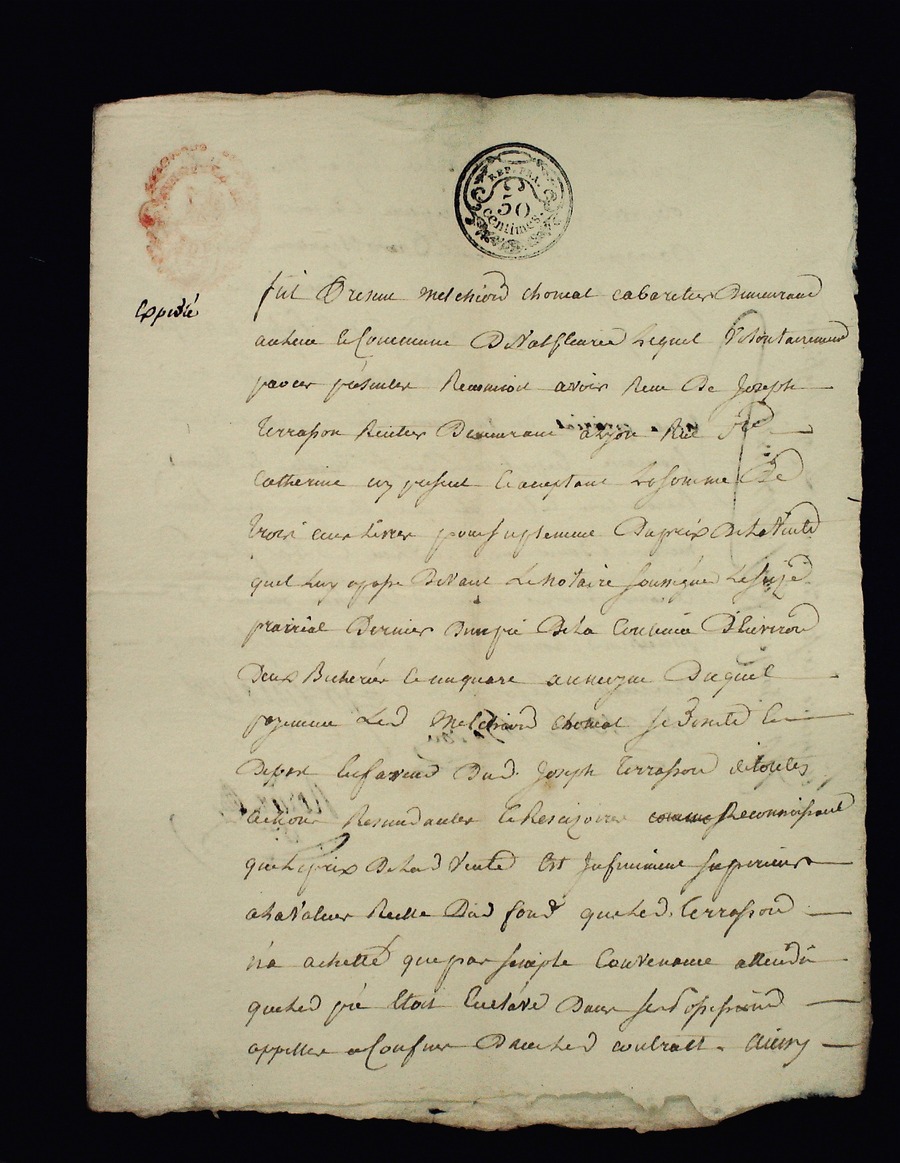 REP. FRA.
50
centimes.
Expedié
fut Présent Melchiord chomat cabaretier Demeurant
en la Commune De Valfleurie Lequel Volontairement
par ces présentes Reconnoit avoir Reçu De Joseph
Terrasson Rentier Demeurant a Lyon Rue Ste
Catherine icy présent & acceptant La Somme De
trois cent Livres pour Suplement Du prix De la Vente
quil Luy a passé Devant Le Notaire Soussigné Le Seize
prairial Dernier Dun pré De la Contenue D'Environ
Deux Bicherées & un quart Duquel
payement Led Melchiord chomat Se Démet &
Départ En faveur Dud. Joseph Terrasson de toutes
actions Rescindantes & Rescizoires comme Reconnoissant
que Le prix De Lad Vente Est Infiniment Superieur
a La Valeur Reelle Dud fond que Led. Terrasson
n'a achetté que par Simple Convenance attendu
que Led pré Etoit Enclavé Dans Ses Possessions
appellés & Confinés Dans Led contract. Ainsy